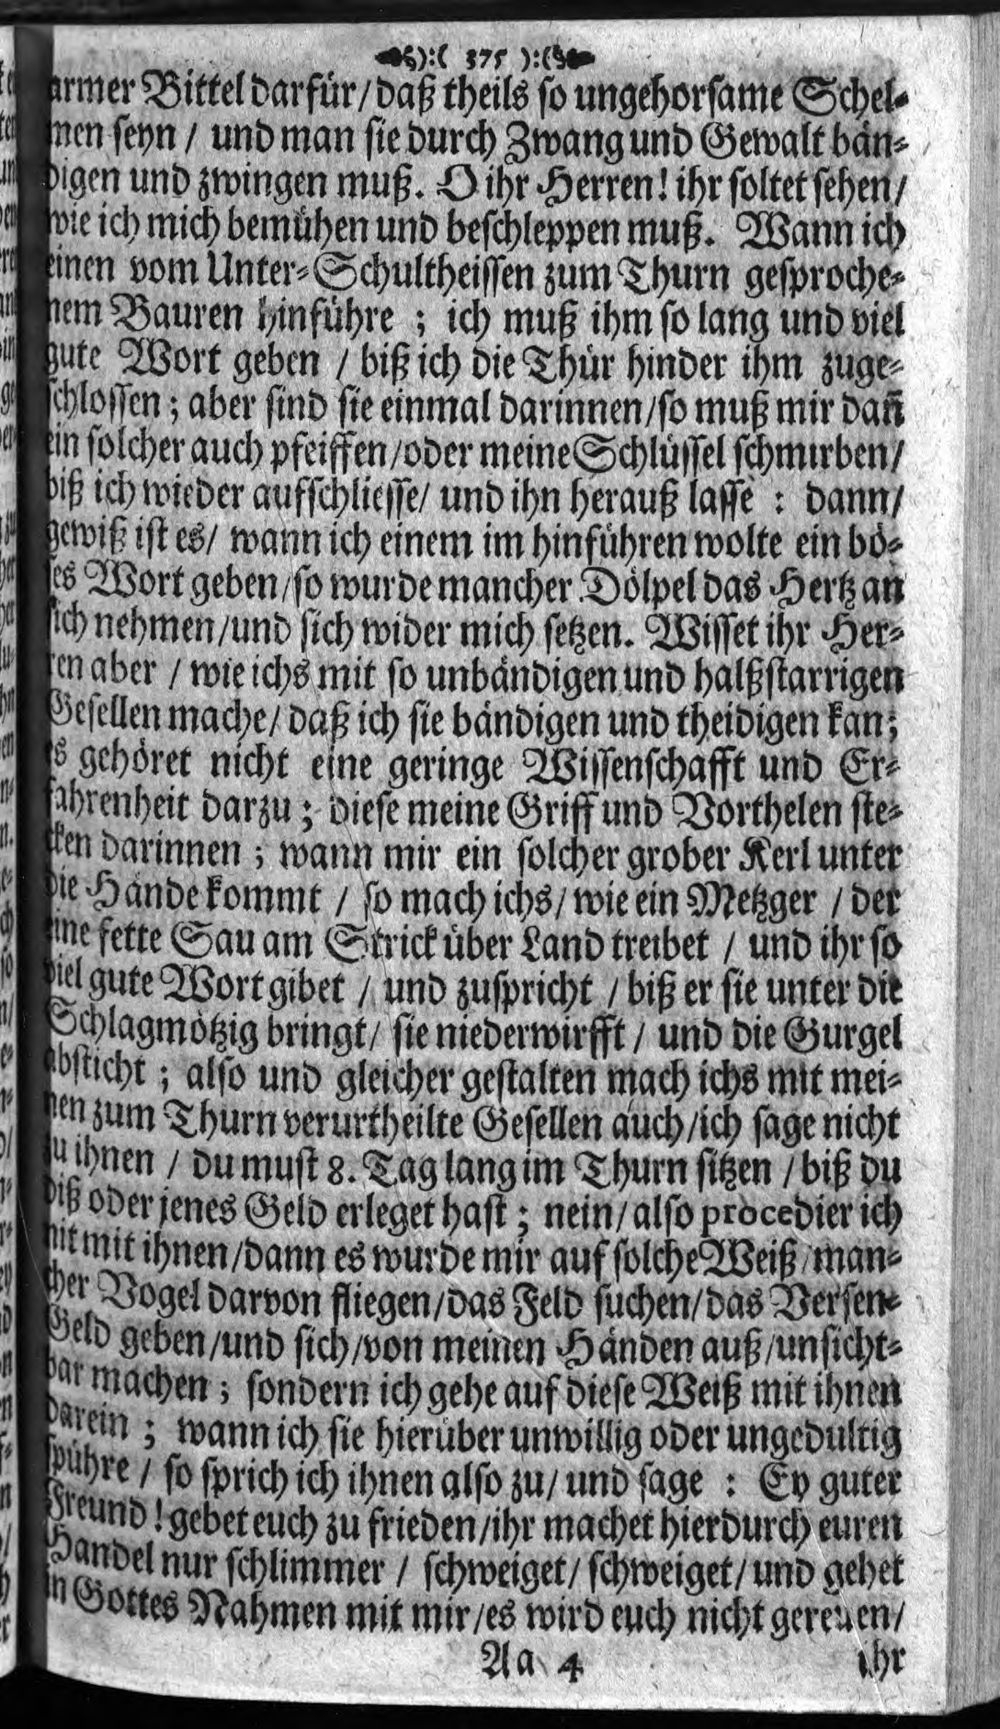 ):( 375 ):(
armer Bittel darfür/ daß theils so ungehorsame Schel-
men seyn / und man sie durch Zwang und Gewalt bän-
digen und zwingen muß. O ihr Herren! ihr soltet sehen/
wie ich mich bemühen und beschleppen muß. Wann ich
einen vom Unter-Schultheissen zum Thurn gesproche-
nem Bauren hinführe ; ich muß ihm so lang und viel
gute Wort geben / biß ich die Thür hinder ihm zuge-
schlossen ; aber sind sie einmal darinnen/so muß mir dañ
ein solcher auch pfeiffen/oder meine Schlüssel schmirben/
biß ich wieder aufschliesse/ und ihn herauß lasse : dann/
gewiß ist es/ wann ich einem im hinführen wolte ein bö-
ses Wort geben/so wurde mancher Dölpel das Hertz an
sich nehmen/und sich wider mich setzen. Wisset ihr Her-
ren aber / wie ichs mit so unbändigen und halßstarrigen
Gesellen mache/ daß ich sie bändigen und theidigen kan;
es gehöret nicht eine geringe Wissenschafft und Er-
fahrenheit darzu ; diese meine Griff und Vorthelen ste-
cken darinnen ; wann mir ein solcher grober Kerl unter
die Hände kommt / so mach ichs/ wie ein Metzger / der
eine fette Sau am Strick über Land treibet / und ihr so
viel gute Wort gibet / und zuspricht / biß er sie unter die
Schlagmötzig bringt/ sie niederwirfft / und die Gurgel
absticht ; also und gleicher gestalten mach ichs mit mei-
nen zum Thurn verurtheilte Gesellen auch/ich sage nicht
zu ihnen / du must 8. Tag lang im Thurn sitzen / biß du
diß oder jenes Geld erleget hast ; nein/ also procedier ich
nit mit ihnen/dann es wurde mir auf solche Weiß/man-
cher Vogel darvon fliegen/das Feld suchen/das Versen-
Geld geben/und sich/von meinen Händen auß/unsicht-
bar machen ; sondern ich gehe auf diese Weiß mit ihnen
darein ; wann ich sie hierüber unwillig oder ungedultig
spühre / so sprich ich ihnen also zu/ und sage : Ey guter
Freund! gebet euch zu frieden/ihr machet hierdurch euren
Handel nur schlimmer / schweiget/ schweiget/ und gehet
in Gottes Nahmen mit mir/es wird euch nicht gereuen/
Aa 4 ihr